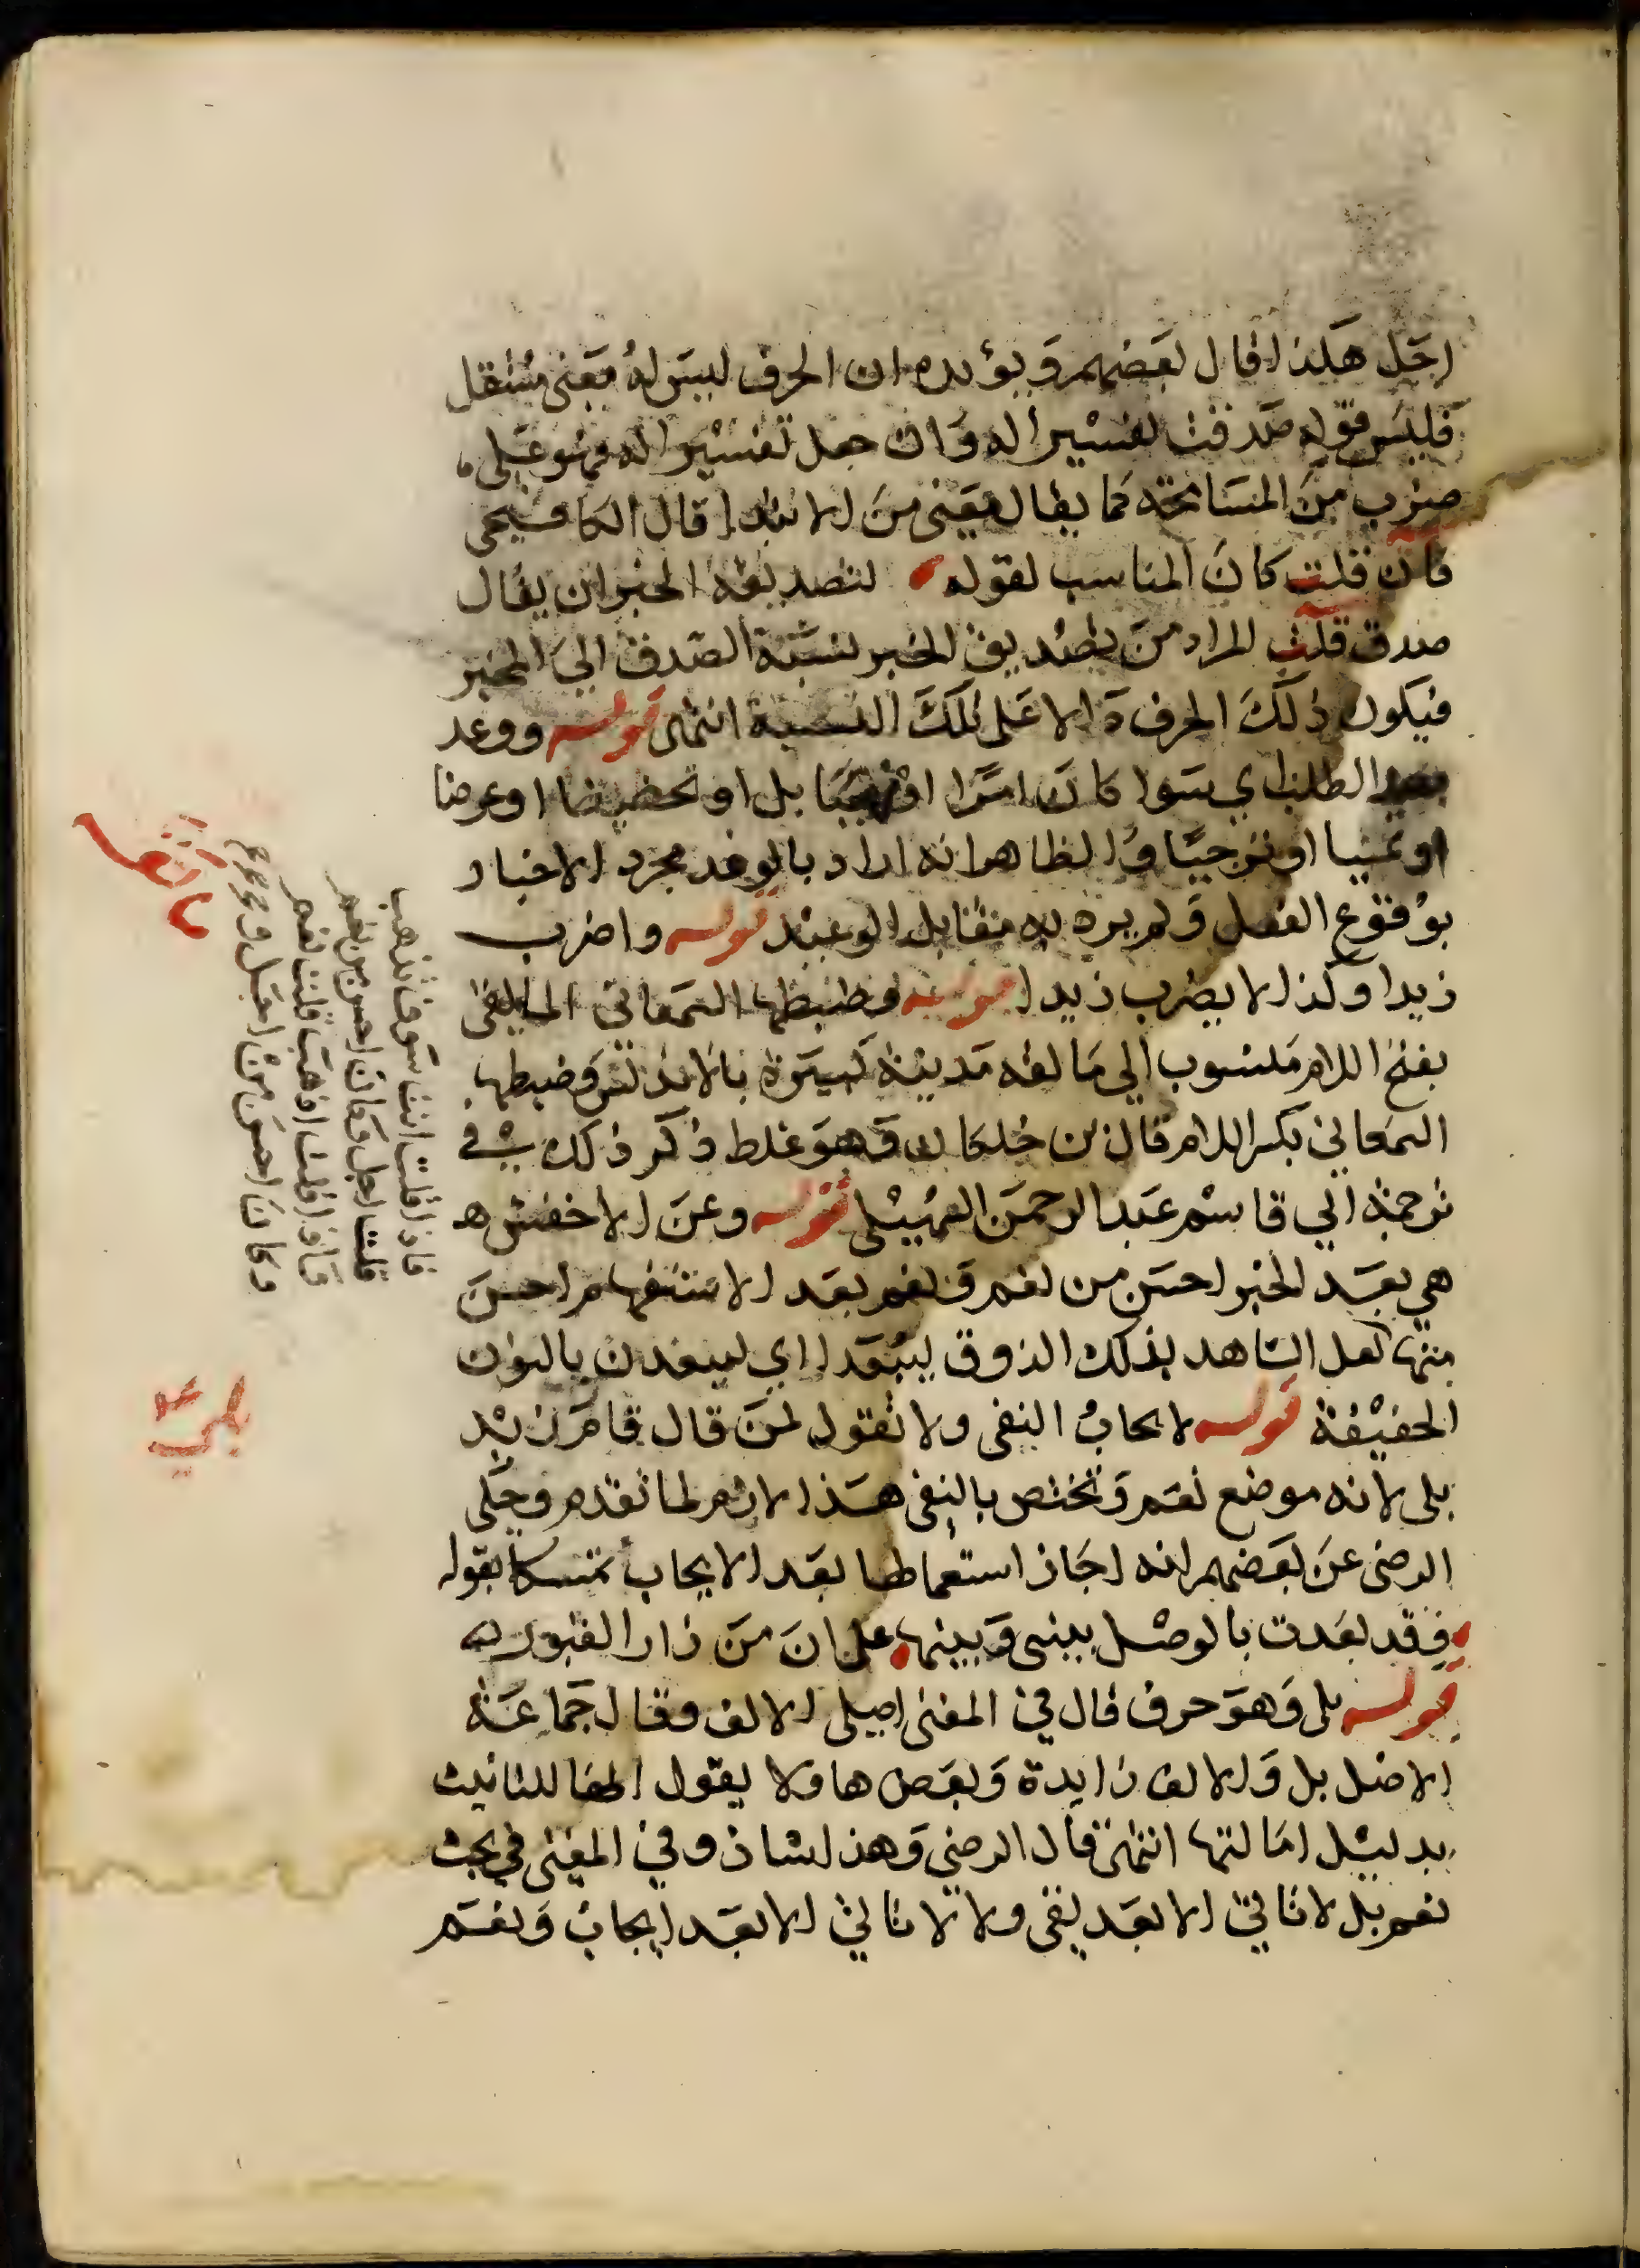 اجل هكذا قال بعضهم ويؤيده ان الحرف ليس له معنى مستقل
فليس قوله صدقت تفسيرا له وان جعل تفسيرا له فهو على
ضرب من المسامحة كما يقال معنى من الابتدا قال الكافيجى
فان قلت كان المناسب لقوله لتصديق الخبر ان يقال
صدق قلت المراد من تصديق الخبر نسبة الصدق الى المخبر
فيكون ذلك الحرف دالا على تلك النسبة انتهى قوله ووعد
بعد الطلب اي سوا كان امرا او نهيا بل او تحضيضا او عرضا
او تمنيا او ترجيا والظاهر انه اراد بالوعد مجرد الاخبار
بوقوع الفعل ولم يرد به مقابل الوعيد قوله واضرب
زيدا وكذا لا يضرب زيدا قوله وضبطها المالقى
بفتح اللام منسوب الي مالقه مدينة كبيرة بالاندلس وضبطها
السمعاني بكسر اللام قال بن خلكان وهو غلط ذكر ذلك في
ترجمة ابي قاسم عبد الرحمن السهيلي قوله وعن الاخفش ه
هي بعد الخبر احسن من نعم ونعم بعد الاستفهام احسن
منها لعل الشاهد بذلك الذوق ليبعدا اي ليبعدن بالنون
الخفيفة قوله لايجاب النفى ولا تقول لمن قال قام زيد
بلى لانه موضع نعم وتختص بالنفى هذا لازم لما تقدم وحكى
الرضى عن بعضهم انه اجاز استعمالها بعد الايجاب تمسكا بقوله
وقد بعدت بالوصل بينى وبينها على ان من زار القبور
قوله بلى وهو حرف قال في المغنى اصلى الالف وقال جماعة
الاصل بل والالف زايدة وبعض هاولا يقول انها للتانيث
بدليل امالتها انتهى قال الرضى وهذا شاذ وفي المغنى في بحث
نعم بلى لا تاتي الا بعد نفى ولا لا تاتي الا بعد ايجاب ونعم
فاذا قلت انت سوف تذهب
قلت اجل وكان احسن من نعم
فاذا قلت اذهب قلت نعم
وكان احسن من اجل
بلى